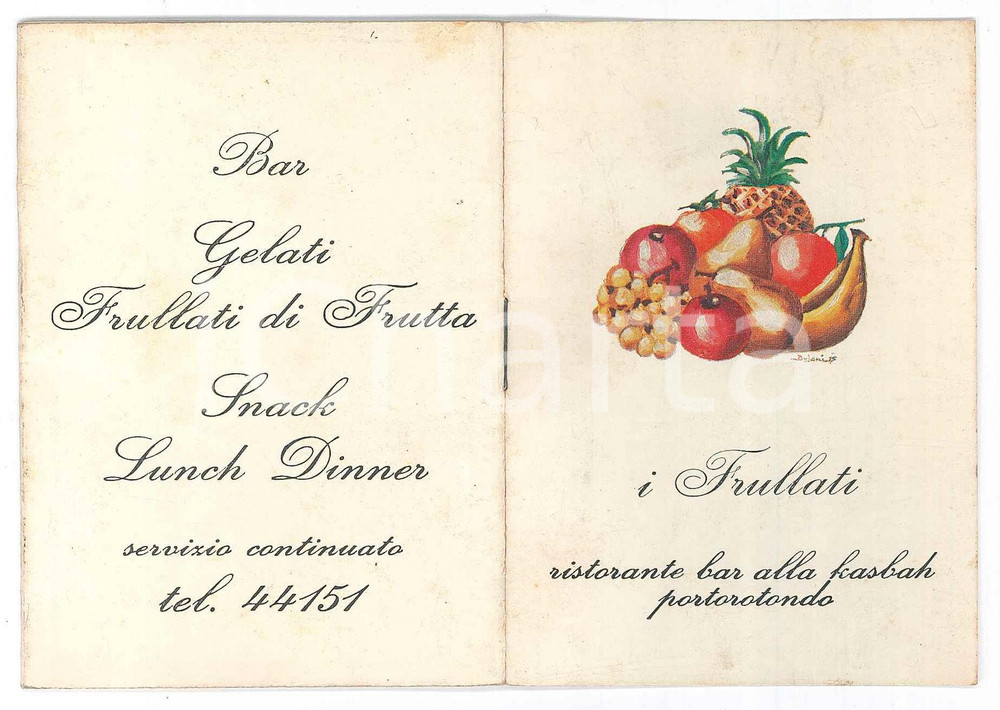 Bar
Gelati
Frullati di Frutta
Snack
Lunch Dinner
servizio continuato
tel. 44151
i Frullati
ristorante bar alla kasbah
portorotondo